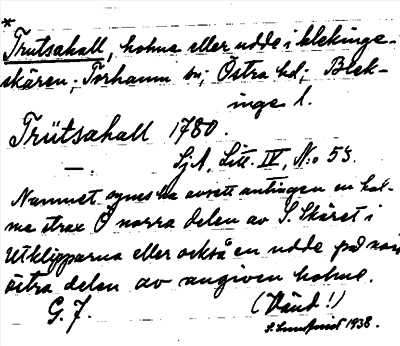 *
Trutsahall, holme eller udde i blekinge-
skären; Torhamn sn; Östra hd; Blek-
inge l.
Trütsahall 1780.
SjA, Litt. IV, N:o 53.
Namnet synes ha avsett antingen en hol-
me strax Ö norra delen av S. Skäret i
Utklipporna eller också en udde på nord-
östra delen av angiven holme.
G. F. (Vänd!)
1938.